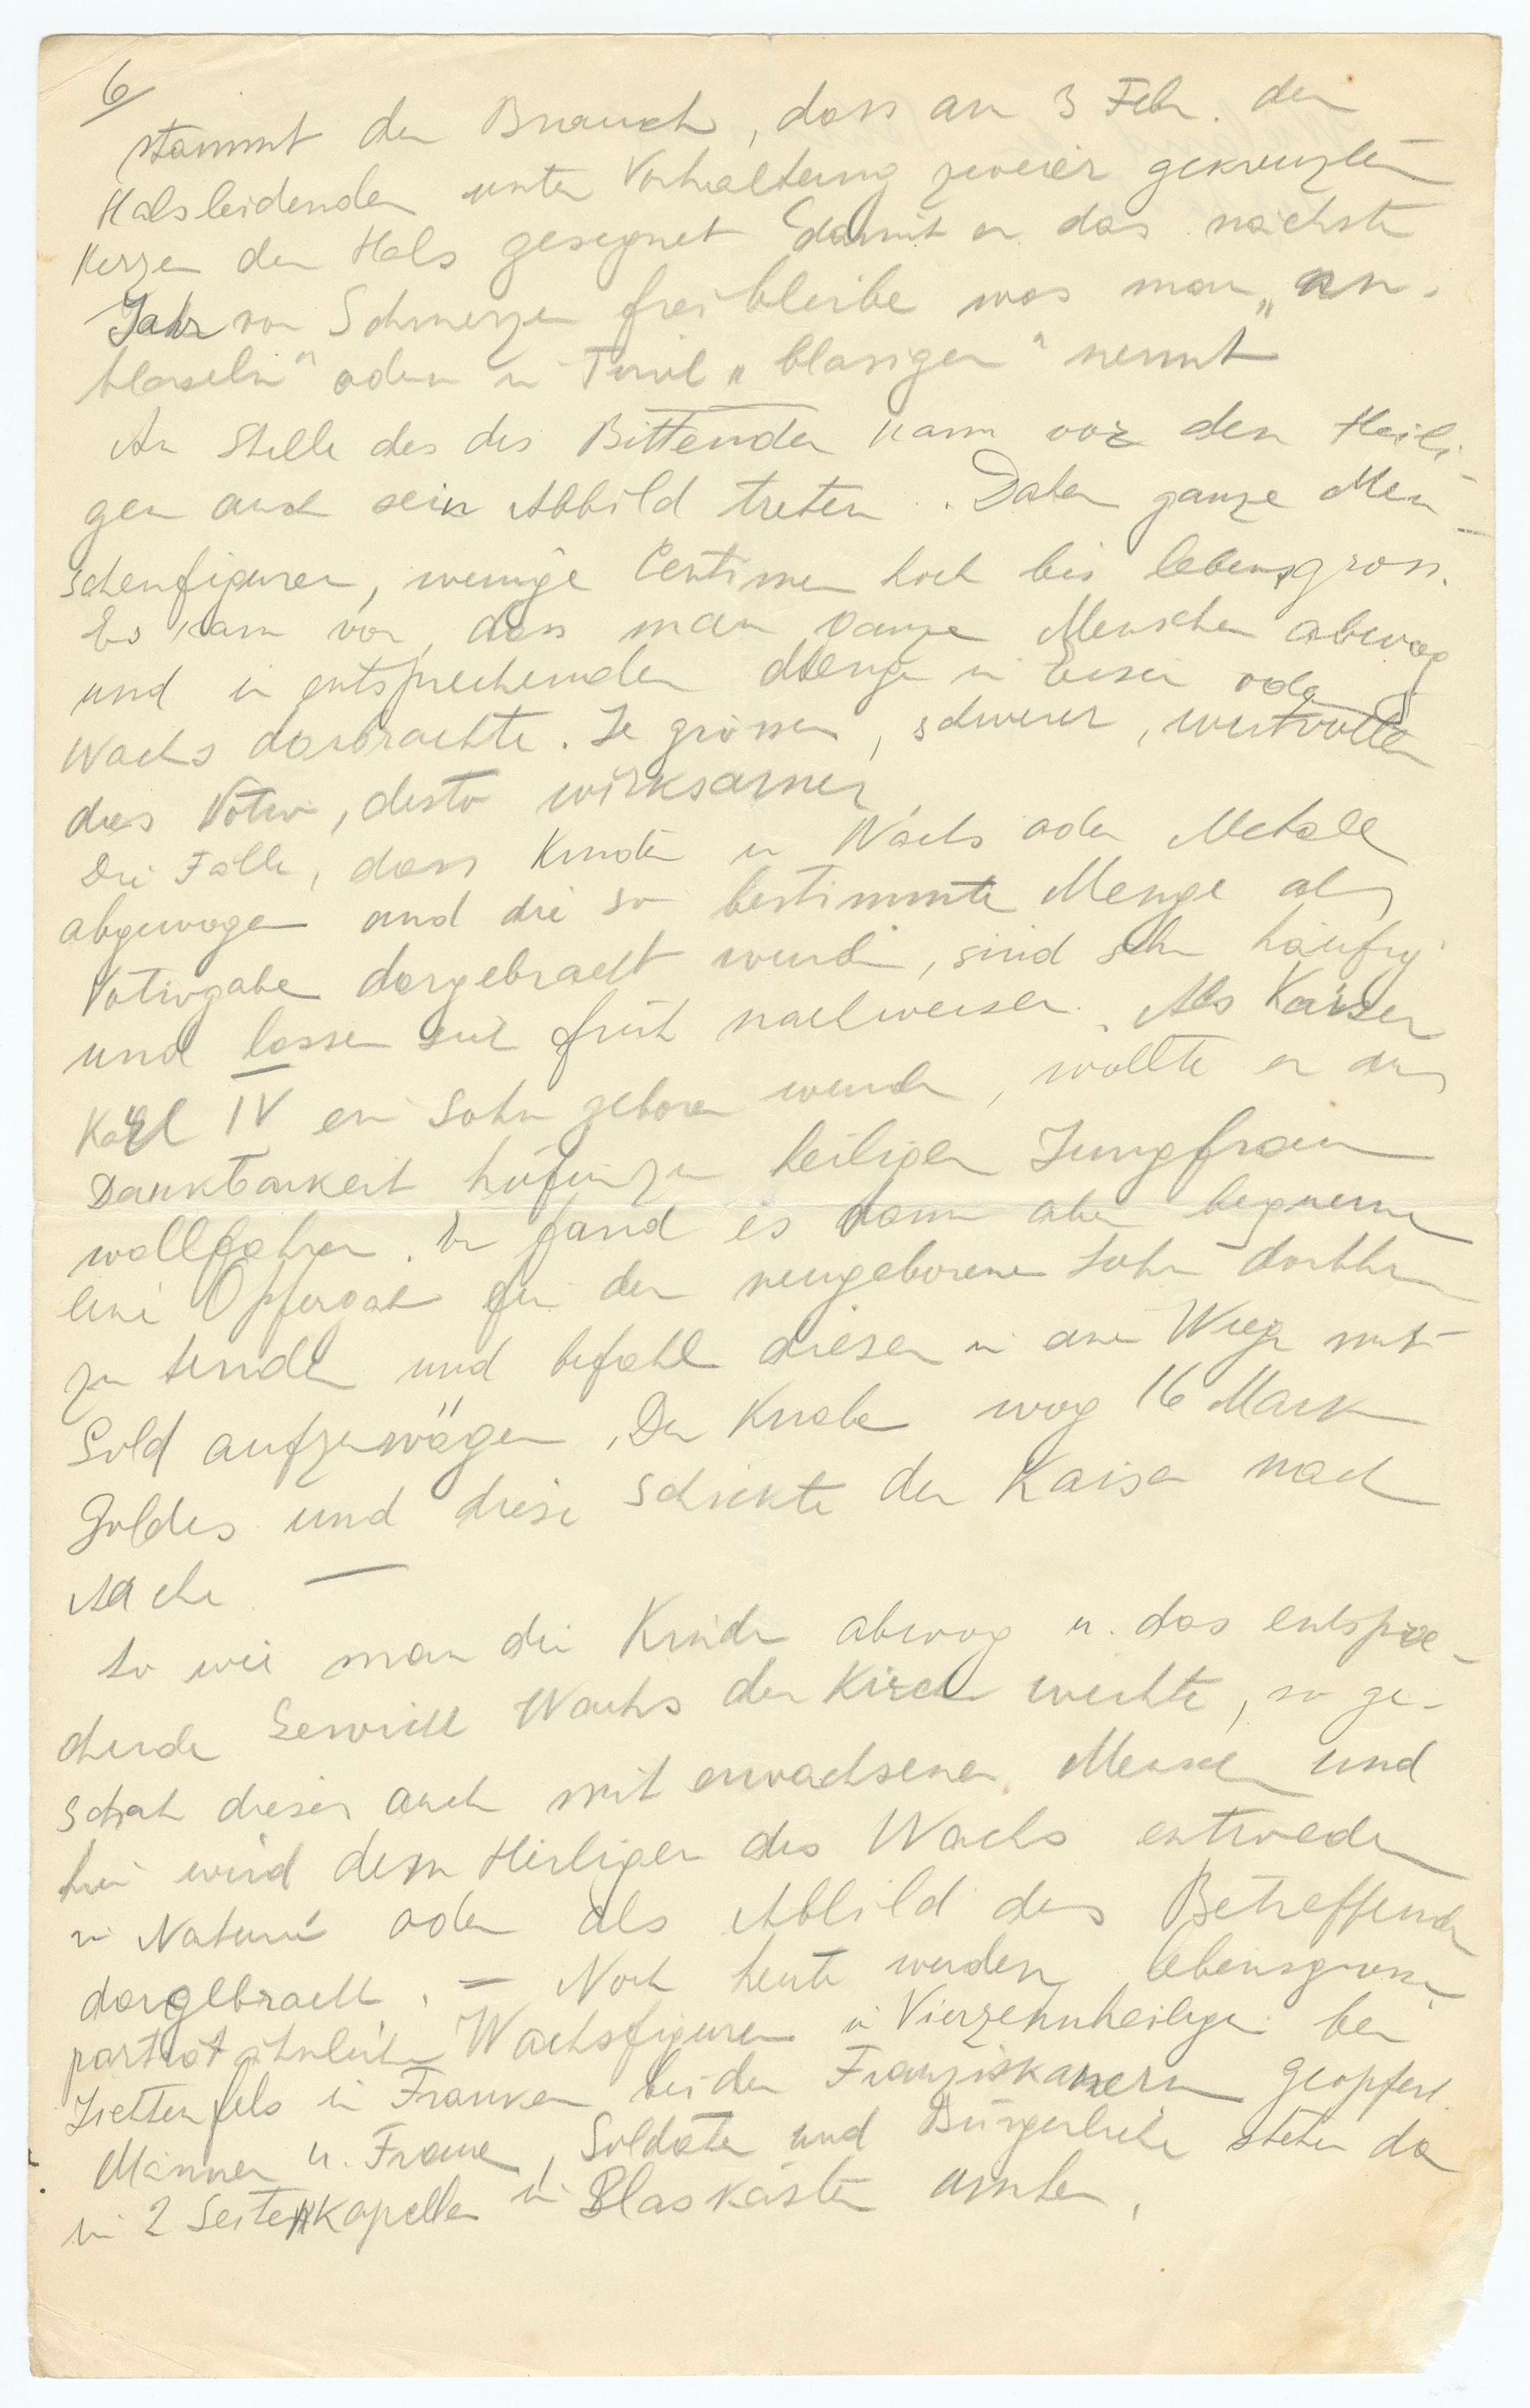 6/
stammt der Brauch, dass am 3 Febr. den
Halsleidenden unter Vorhaltung zweier gekreuzten
Kerzen der Hals gesegnet damit er das nächste
Jahr von Schmerzen frei bleibe was man „an-
blaseln" oder in Tirol „blasigen" nennt
An Stelle des des Bittenden kann vor den Heili-
gen auch sein Abbild treten. Daher ganze Men-
schenfiguren, wenige Centimer hoch bis lebensgross.
Es kam vor, dass man ganze Menschen abwog
und in entsprechender Menge in Eisen oder
Wachs darbrachte. Je grösser, schwerer, wertvoller
das Votiv, desto wirksamer,
Die Fälle, dass Kinder in Wachs oder Metall
abgewogen und die so bestimmte Menge als
Votivgabe dargebracht wurde, sind sehr häufig
und lassen sich früh nachweisen. Als Kaiser
Karl IV ein Sohn geboren wurde, wollte er aus
Dankbarkeit zur heiligen Jungfrau
wallfahren. Er fand es dann aber bequemer
eine Opfergabe für den neugeborenen Sohn dorthin
zu senden und befahl diesen in einer Wiege mit
Gold aufzuwägen, Der Knabe wog 16 Mark
Goldes und diese schickte der Kaiser nach
Aachen —
So wie man die Kinder abwog u. das entspre-
chende Gewicht Wachs der Kirche weihte, so ge-
schah dieses auch mit erwachsenen Menschen und
hier wird dem Heiligen das Wachs entweder
in Natura oder als Abbild des Betreffenden
dargebracht. — Noch heute werden lebensgrosse
porträtähnliche Wachsfiguren in Vierzehnheiligen bei
Lichtenfels in Franken bei den Franziskanern geopfert.
Männer u. Frauen, Soldaten und Bürgerliche stehen da
in 2 Seitenkapellen in Glaskästen umher,